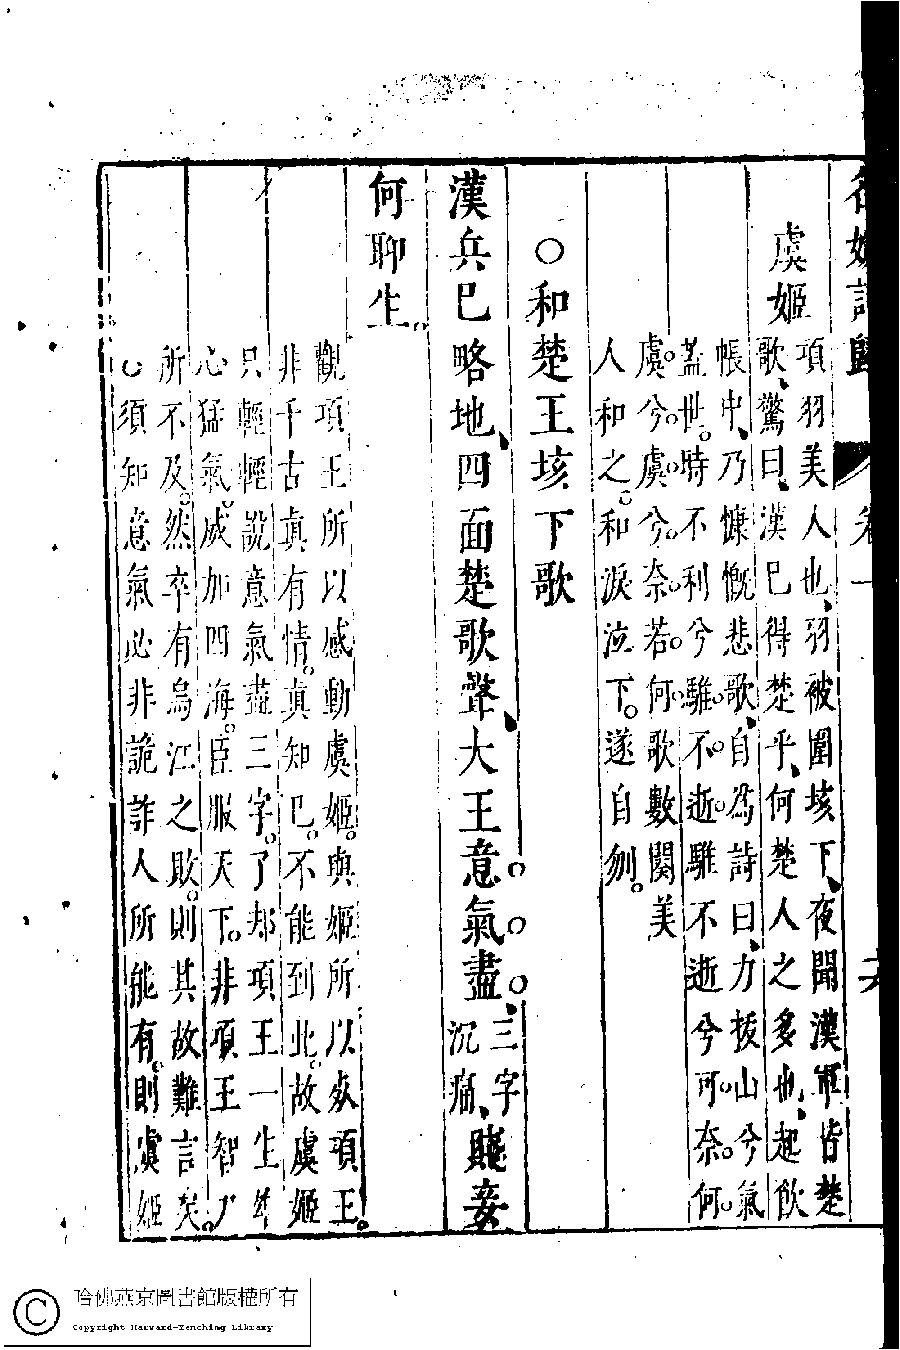 名媛詩歸 卷一 六
虞姬
項羽美人也、羽被圍垓下、夜聞漢軍皆楚
歌、驚曰、漢已得楚乎、何楚人之多也、起飲
帳中、乃慷慨悲歌、自為詩曰、力拔山兮氣
蓋世。時不利兮騅不逝。騅不逝兮可奈何。
虞兮虞兮奈若何。歌數闋美
人和之。和淚泣下。遂自刎。
○和楚王垓下歌
漢兵已略地、四面楚歌聲、大王意氣盡、三字沉痛、賤妾
何聊生。
觀項王所以感動虞姬。與姬所以从項王。
非千古真有情。真知已。不能到此。故虞姬
只輕輕說意氣盡三字。了却項王一生
心猛氣。威加四海。臣服天下。非項王智力
所不及。然卒有烏江之敗。則其故難言矣。
○須知意氣必非詭詐人所能有。則虞姬
哈佛燕京圖書館版權所有
Copyright Harvard-Yenching Library